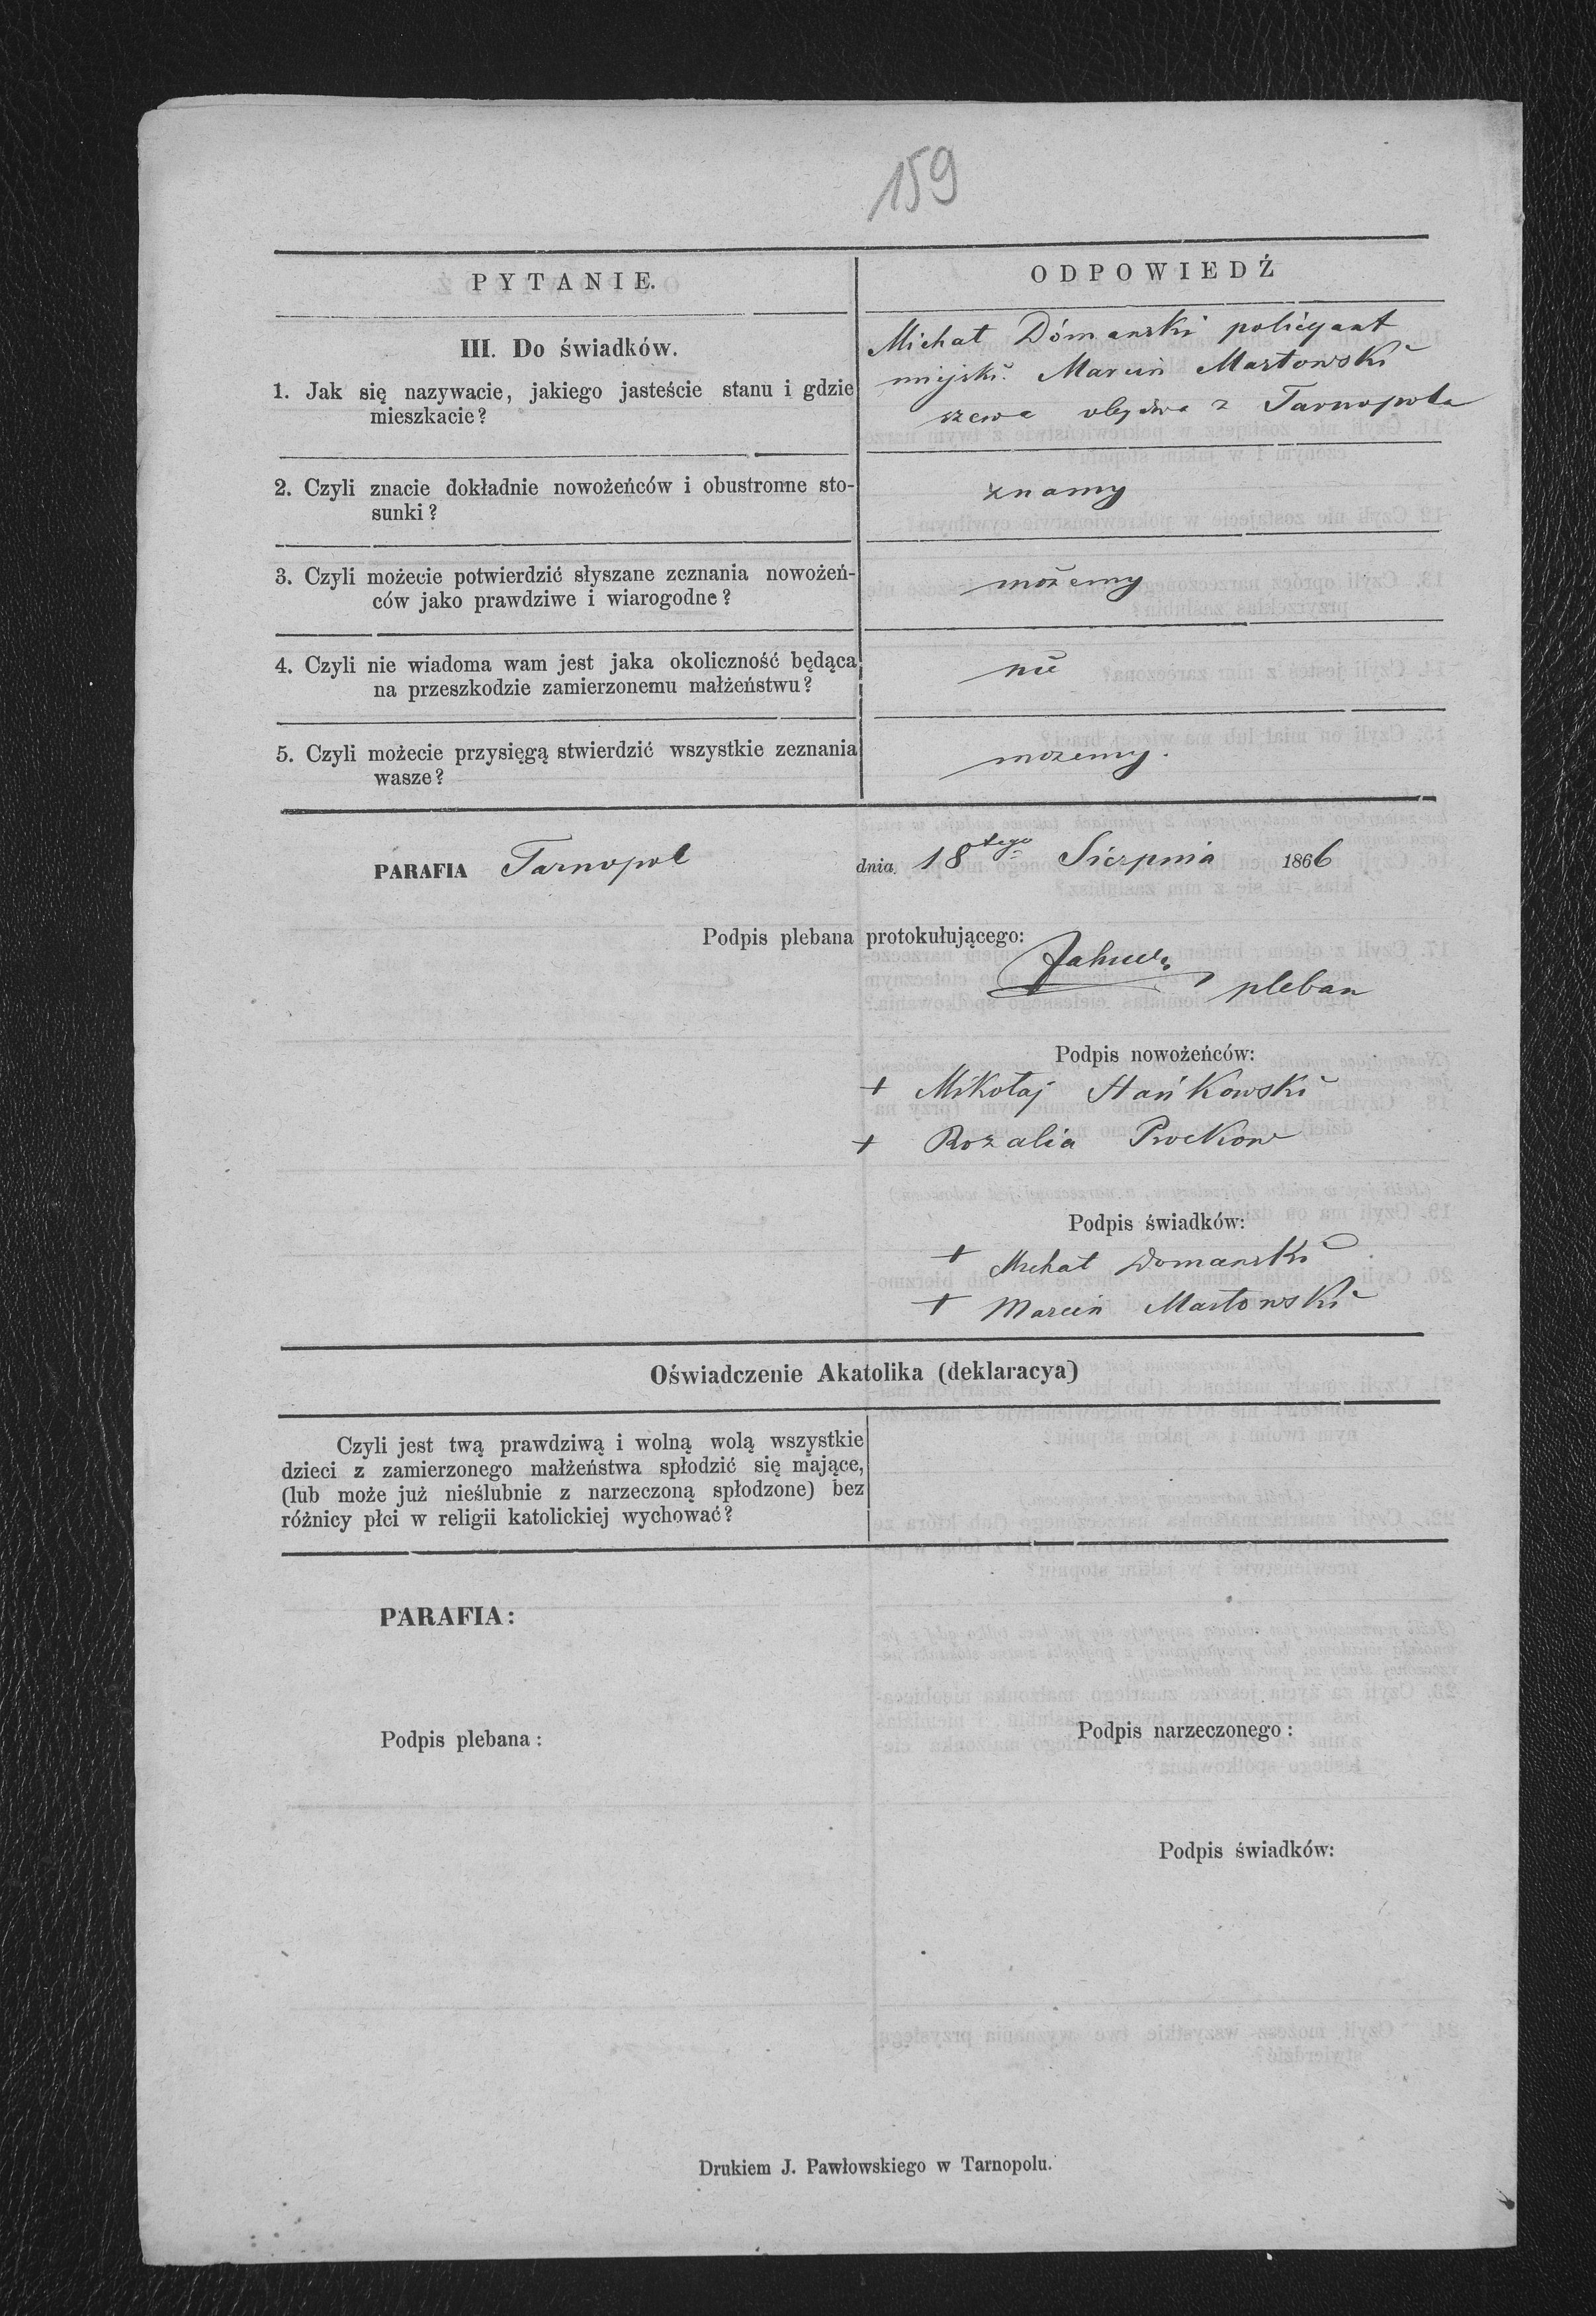 159
PYTANIE.
ODPOWIEDŹ
III. Do świadków.
1. Jak się nazywacie, jakiego jasteście stanu i gdzie
mieszkacie?
Michał Dómański policyant
miejski. Marcin Martowski
szewc obydwa z Tarnopola
2. Czyli znacie dokładnie nowożeńców i obustronne sto-
sunki?
znamy
3. Czyli możecie potwierdzić słyszane zeznania nowożeń-
ców jako prawdziwe i wiarogodne?
możemy
4. Czyli nie wiadoma wam jest jaka okoliczność będąca
na przeszkodzie zamierzonemu małżeństwu?
nie
5. Czyli możecie przysięgą stwierdzić wszystkie zeznania
wasze?
mozemy.
PARAFIA Tarnopol dnia 18tego Sierpnia 1866
Podpis plebana protokułującego:
pleban
Podpis nowożeńców:
+ Mikołaj Hańkowski
+ Rozalia Prockow
Podpis świadków:
+ Michał Domanski
+ Marcin Martowski
Oświadczenie Akatolika (deklaracya)
Czyli jest twą prawdziwą i wolną wolą wszystkie
dzieci z zamierzonego małżeństwa spłodzić się mające,
(lub może już nieślubnie z narzeczoną spłodzone) bez
różnicy płci w religii katolickiej wychować?
PARAFIA:
Podpis plebana:
Podpis narzeczonego:
Podpis świadków:
Drukiem J. Pawłowskiego w Tarnopolu.